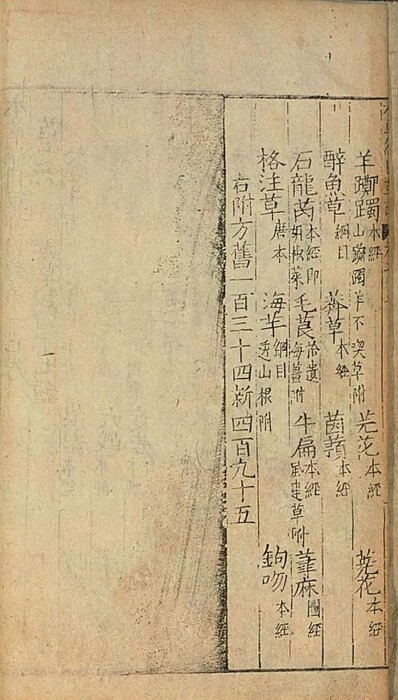 羊躑躅本經 山躑躅 羊不喫草附 芫花本經 蕘花本經
醉魚草綱目 莽草本經 茵蕷本經 蓖麻圖經
石龍芮本經即胡椒菜 毛茛拾遺 海薑附 牛扁本經 虱建草附 蕁麻圖經
格注草唐本 海芋綱目 透山根附 鉤吻本經
右附方舊一百三十四新四百九十五